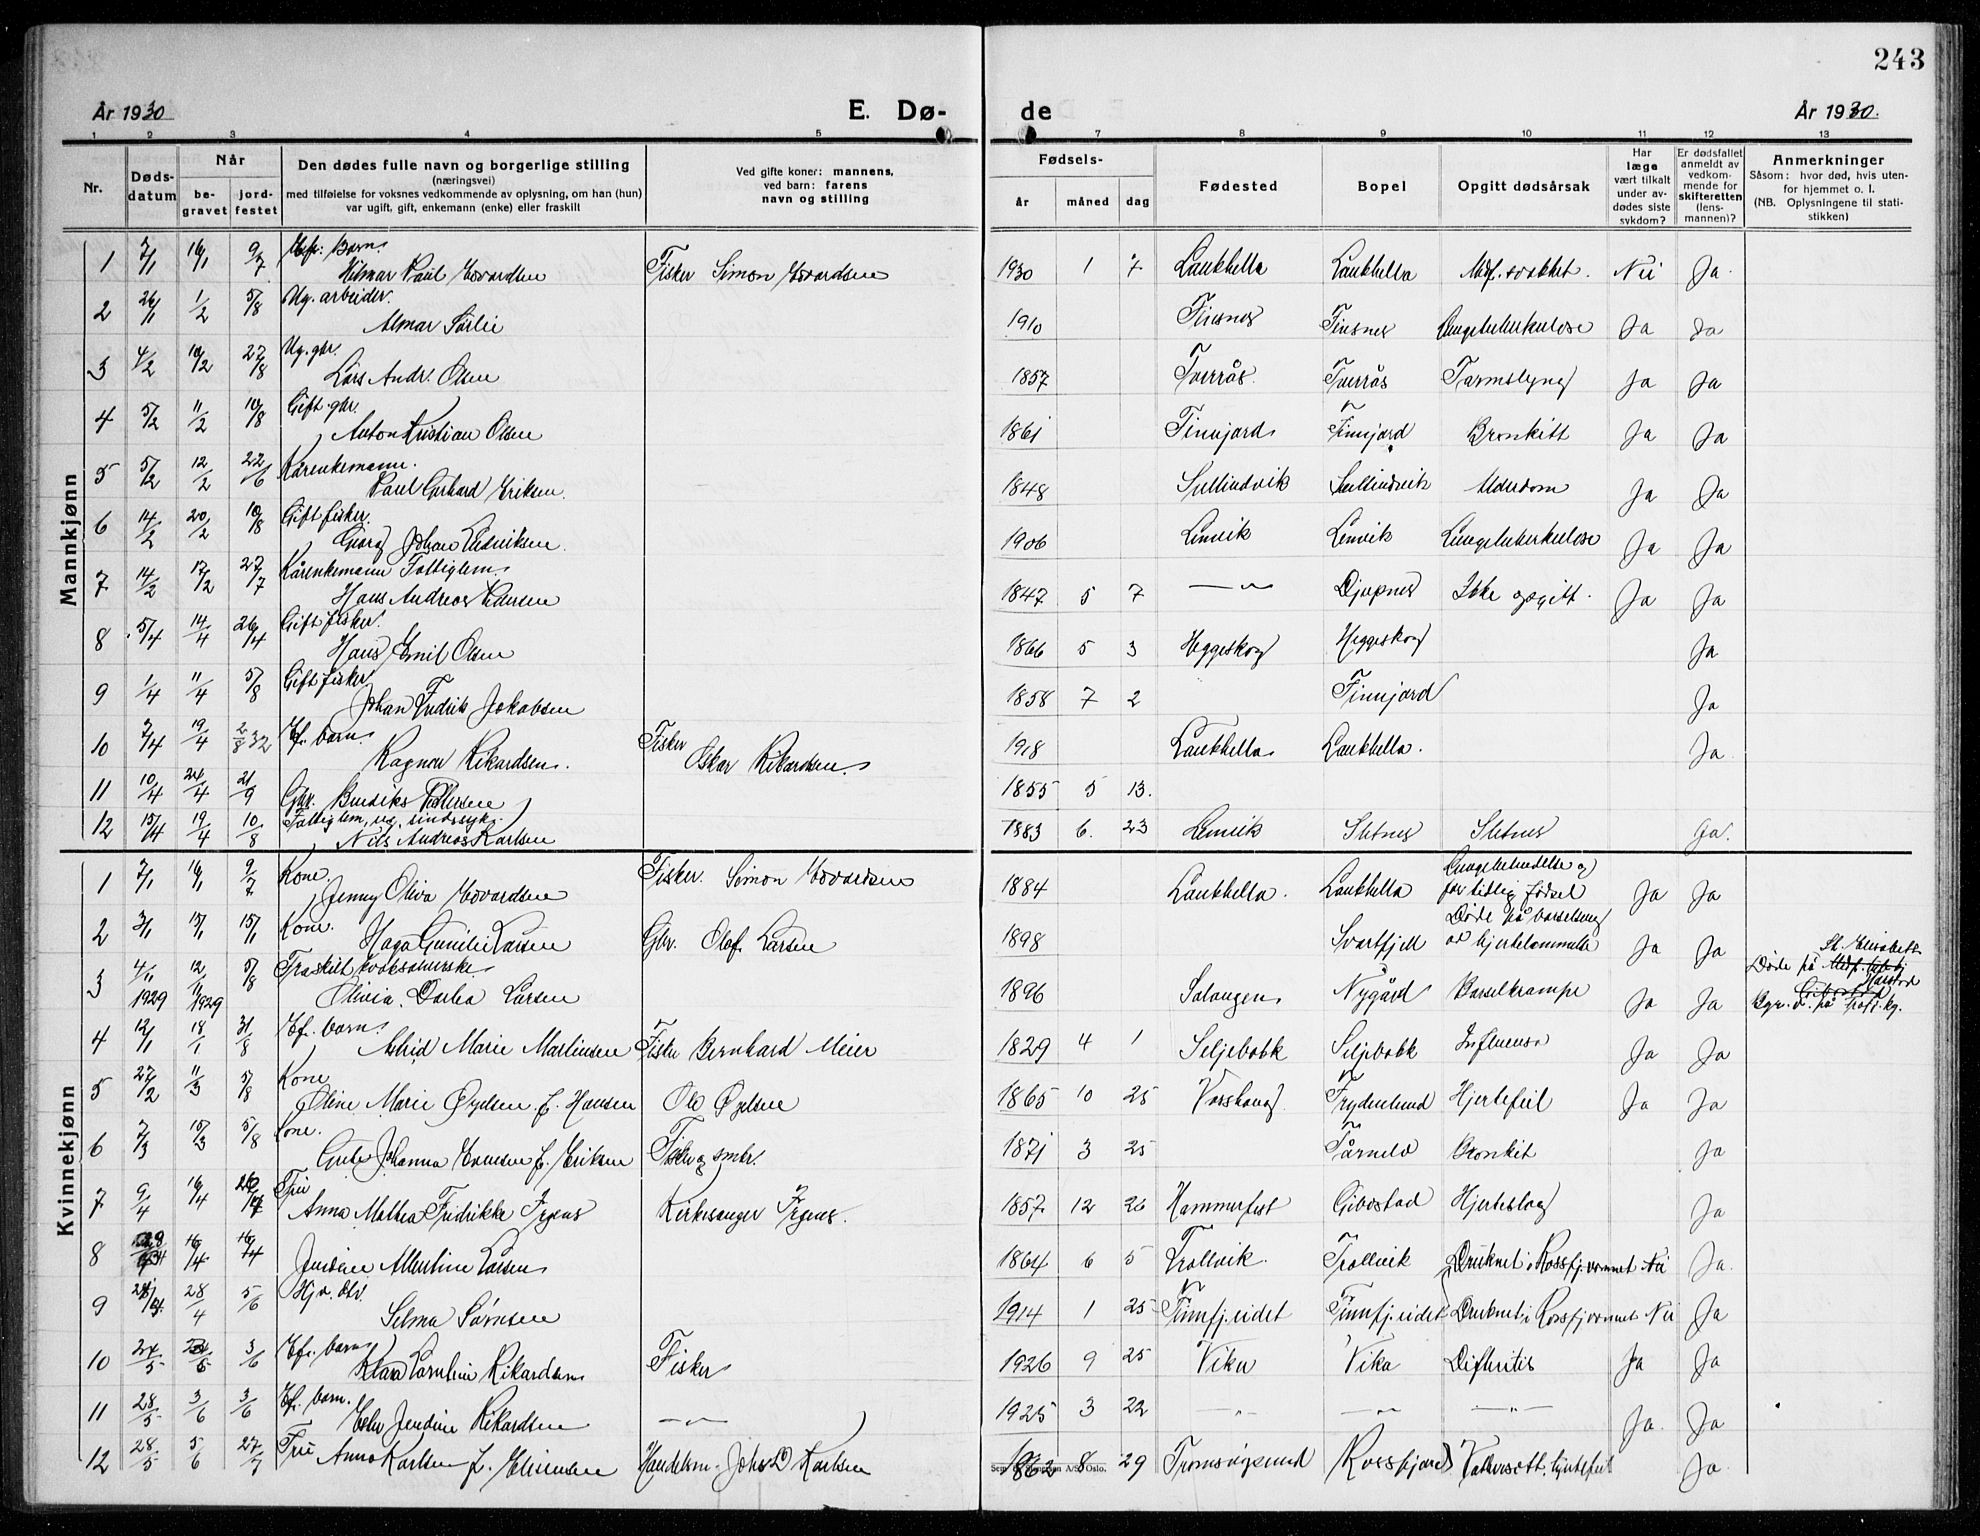 243
År 1930
E. Dø-
de
År 1930.
1 2 3 4 5 7 8 9 10 11 12 13
Nr.
Døds-
datum
Når
be-
gravet
jord-
festet
Den dødes fulle navn og borgerlige stilling
(næringsvei)
med tilføielse for voksnes vedkommende av oplysning, om han (hun)
var ugift, gift, enkemann (enke) eller fraskilt
Ved gifte koner: mannens,
ved barn: farens
navn og stilling
Fødsels-
år måned dag
Fødested
Bopel
Opgitt dødsårsak
Har
læge
vært tilkalt
under av-
dødes siste
sykdom?
Er dødsfallet
anmeldt av
vedkom-
mende for
skifteretten
(lens-
mannen)?
Anmerkninger
Såsom: hvor død, hvis uten-
for hjemmet o. l.
(NB. Oplysningene til stati-
stikken)
Mannkjønn
1 7/1 16/1 9/7 Barn
Hilmar Paul Edvardsen Fisker Simon Edvardsen 1930 1 7 Laukhella Laukhella Medf. svakhet. Nei Ja
2 26/1 1/2 5/8 Ug. arbeider.
Almar Sørlie 1910 Finsnes Finsnes Lungetuberkulose Ja Ja
3 4/2 10/2 27/8 Ug. gbr.
Lars Andr. Olsen 1857 Tverrås Tverrås Tarmslyng Ja Ja
4 5/2 11/2 10/8 Gift gbr.
Anton Kristian Olsen 1861 Finnjord Finnjord Bronkitt Ja Ja
5 5/2 12/2 22/6 Kårenkemann.
Paul Gerhard Eriksen 1848 Sultindvik Sultindvik Alderdom Ja Ja
6 14/2 20/2 10/8 Gift fisker.
Georg Johan Hendriksen 1906 Lenvik Lenvik Lungetuberkulose Ja Ja
7 14/2 17/2 27/7 Kårenkemann Fattiglem
Hans Andreas 1847 5 7 — " — Djupnes Ikke opgitt. Ja Ja
8 5/4 14/4 26/4 Gift fisker.
Hans Emil Olsen 1866 5 3 Heggeskog Heggeskog Ja
9 1/4 11/4 5/8 Gift fisker
Johan Fredrik Jakobsen 1858 7 2 Finnjord Ja
10 7/4 19/4 2/8 32 Ef. barn.
Ragnar Rikardsen. Fisker Oskar Rikardsen. 1918 Laukhella Laukhella. Ja
11 10/4 24/4 21/9 Gbr. Pedersen 1855 5 13.
12 15/4 19/4 10/8 Fattiglem, ug. sindssyk.
Nils Andreas Karlsen 1883 6. 23 Lenvik Sletnes Sletnes Ja.
Kvinnekjønn
1 7/1 16/1 9/7 Kone.
Jenny Oliva Edvardsen Fisker. Simon Edvardsen 1884 Laukhella. Laukhella Lungebetendelse og
for tidlig fødsel Ja Ja
2 3/1 15/1 15/1 Kone.
Haga Larsen Gbr. Olof Larsen 1898 Svartfjell Døde på barselseng
av hjertelammelse Ja Ja
3 4/11 1929 12/11 1929 5/8 Fraskilt
Olivia Larsen 1896 Salangen Nygård Barselkrampe Ja Ja Døde på St. Elisabeth
Harstad
Gibostad
4 12/1 18/1 31/8 Ef. barn
Astrid Marie Martinsen Fisker Bernhard Meier 1829 4 1 Seljebakk Seljebakk Influensa Ja Ja
5 27/2 11/3 5/8 Kone
Oline Marie Øydsen f. Hansen Ole Øydsen 1865 10 25 Frydenlund Hjertefeil Ja Ja
6 7/3 15/3 5/8 Kone.
Johanna f. Eriksen Fisker og smbr. 1871 3 25 Tårnelv Bronkit Ja
7 9/4 16/4 Fru
Anna Mathea Fredrikke Irgens Kirkesanger Irgens. 1857. 12 26 Hammerfest Gibostad Hjerteslag Ja
8 16/4 16/4 Jensine Albertine Larsen 1864 6 5 Trollvik. Trollvik Druknet i Rossfj.vannet Nei Ja.
9 28/4 5/6 Hj.v. dtr.
Selma Sørnsen 1914 1 25 Finnfj.eidet Finnfj.eidet Druknet i Rossfj.vannet Nei Ja
10 24/5 3/6 Ef. barn
Klara Rikardsen Fisker 1926 9 25 Vika Vika Difteritis Ja Ja
11 28/5 3/6 3/6 Ef. barn.
Jendine Rikardsen — " — 1925 3 22 — " — — " — — " — Ja. Ja
12 28/5 5/6 27/7 Fru Anna Karlsen f. Handelsm. Johs. Karlsen 1862 8 29 Tromsøysund Rossfjord Vattersott, hjertefeil Ja.
A/S Oslo.